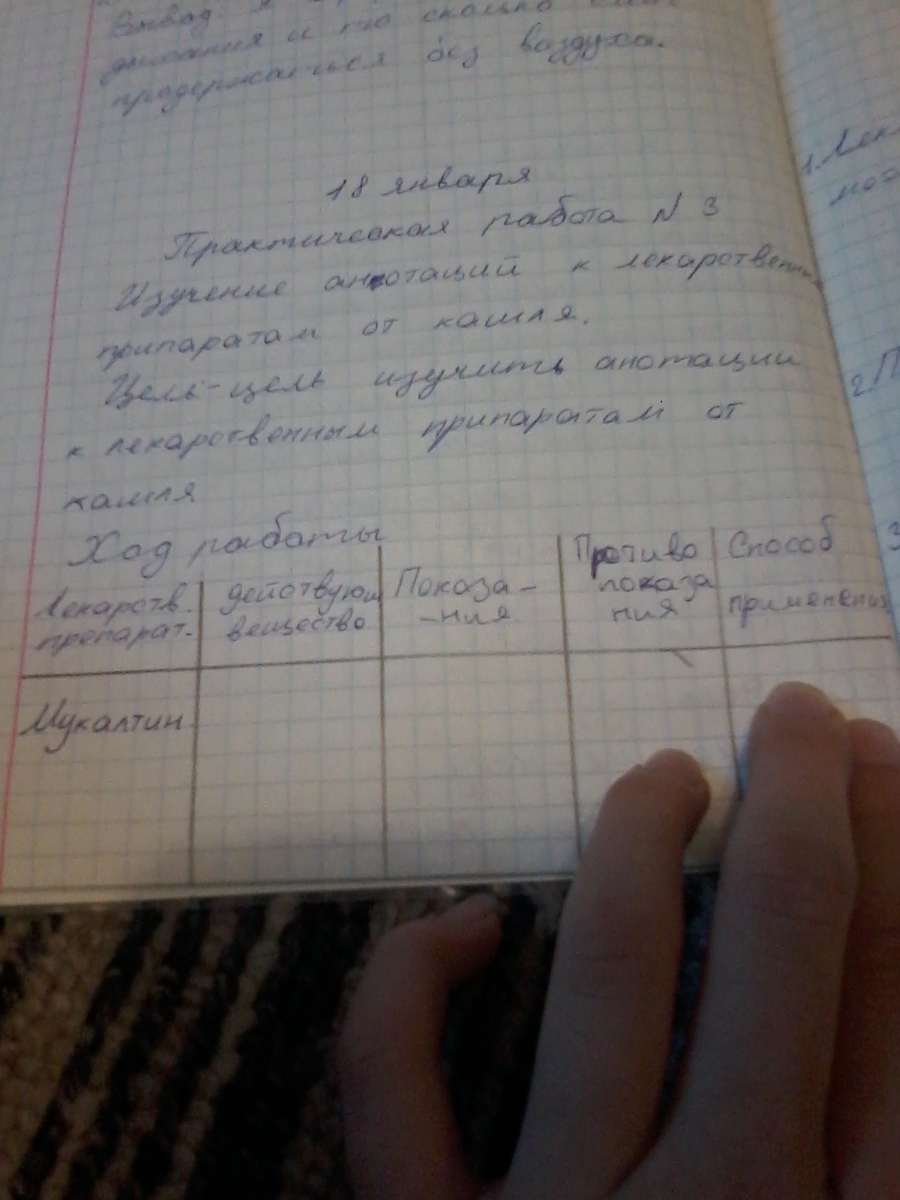 Вывод. Я
дыхания и то сколько
продержаться без воздуха.
18 января
Практическая работа N 3
Изучение анотаций к лекарственным
припаратам от кашля.
Цель-цель изучить анотации
к лекарственным припаратам от
кашля
Ход работы
Лекарств. препарат.
действующ вещество
Показа- -ния
Противо показа ния
Способ применения
Мукалтин
1.
2.П
3